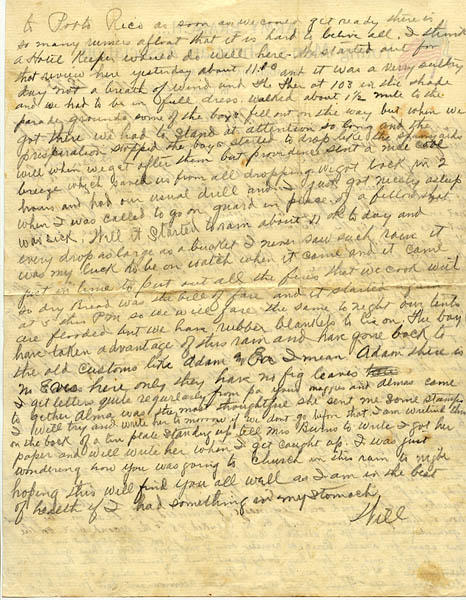 to Porto Rico as soon as we could get ready there is
so many rumers afloat that it is hard to belive all. I think
a Hotel Keeper would do well here. We started out for
that review here yesterday about 11.00 and it was a very sultry
day not a breath of wind and the ther at 103 in the shade
and we had to be in full dress. walked about 1½ mile to the
parade grounds some of the boys fell out on the way but when we
got there we had to stand at attention so long and the
presperation stopped the boys started to drop like the
will when we get after them but providence sent a nice cool
breeze which saved us from all dropping. We got back in 2
hours and had our usual drill and I just got nicely asleep
when I was called to go on guard in place of a fellow that
was sick. Well it started to rain about 11 ock to day and
every drop as large as a bucket I never saw such rain it
was my luck to be on watch when it came and it came
just in time to put out all the fires that we cook with
so dry Bread was the bill of fare and it started
at 5 this PM so we will fare the same to night our tents
are flooded but we have rubber blankets to lie on. The boys
have taken advantage of this rain and have gone back to
the old customs like Adam & Eve I mean Adam there is
no Eves here only they have no fig leaves
I get letters quite regularly from pa yours magges and almas came
to gether Alma was the most thoughtful she sent me some stamps
I will try and write her to morrow if we dont go before that I am writing this
on the back of a tin plate standing up tell Mrs Burns to write I got her
paper and will write her when I get caught up. I was just
wondring how you was going to Church in this rain to night
hoping this will find you all well as I am in the best
of health if I had something in my stomach
Will